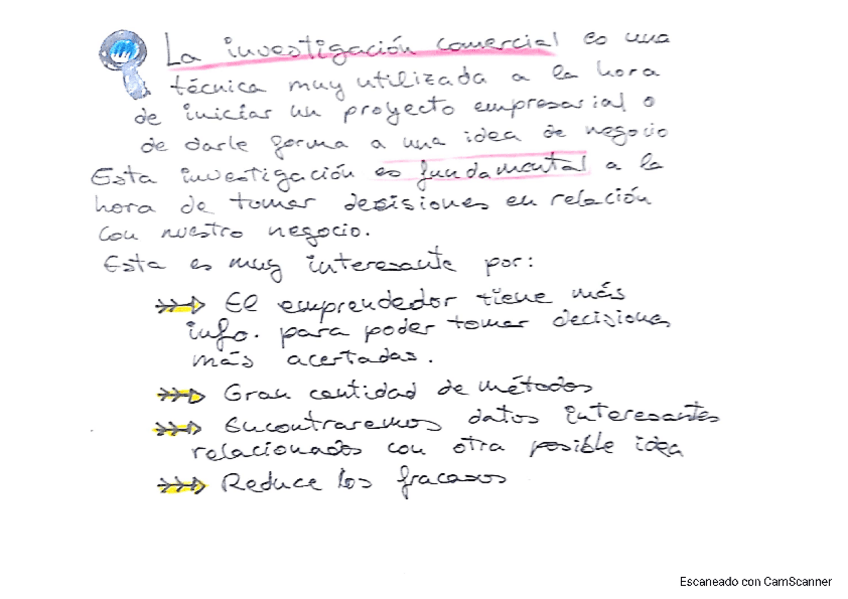 La investigación comercial es una
técnica muy utilizada a la hora
de iniciar un proyecto empresarial o
de darle forma a una idea de negocio
Esta investigación es fundamental a la
hora de tomar decisiones en relación
con nuestro negocio.
Esta es muy interesante por:
El emprendedor tiene más
info. para poder tomar decisiones
más acertadas.
Gran cantidad de métodos
Encontraremos datos interesantes
relacionados con otra posible idea
Reduce los fracasos
Escaneado con CamScanner